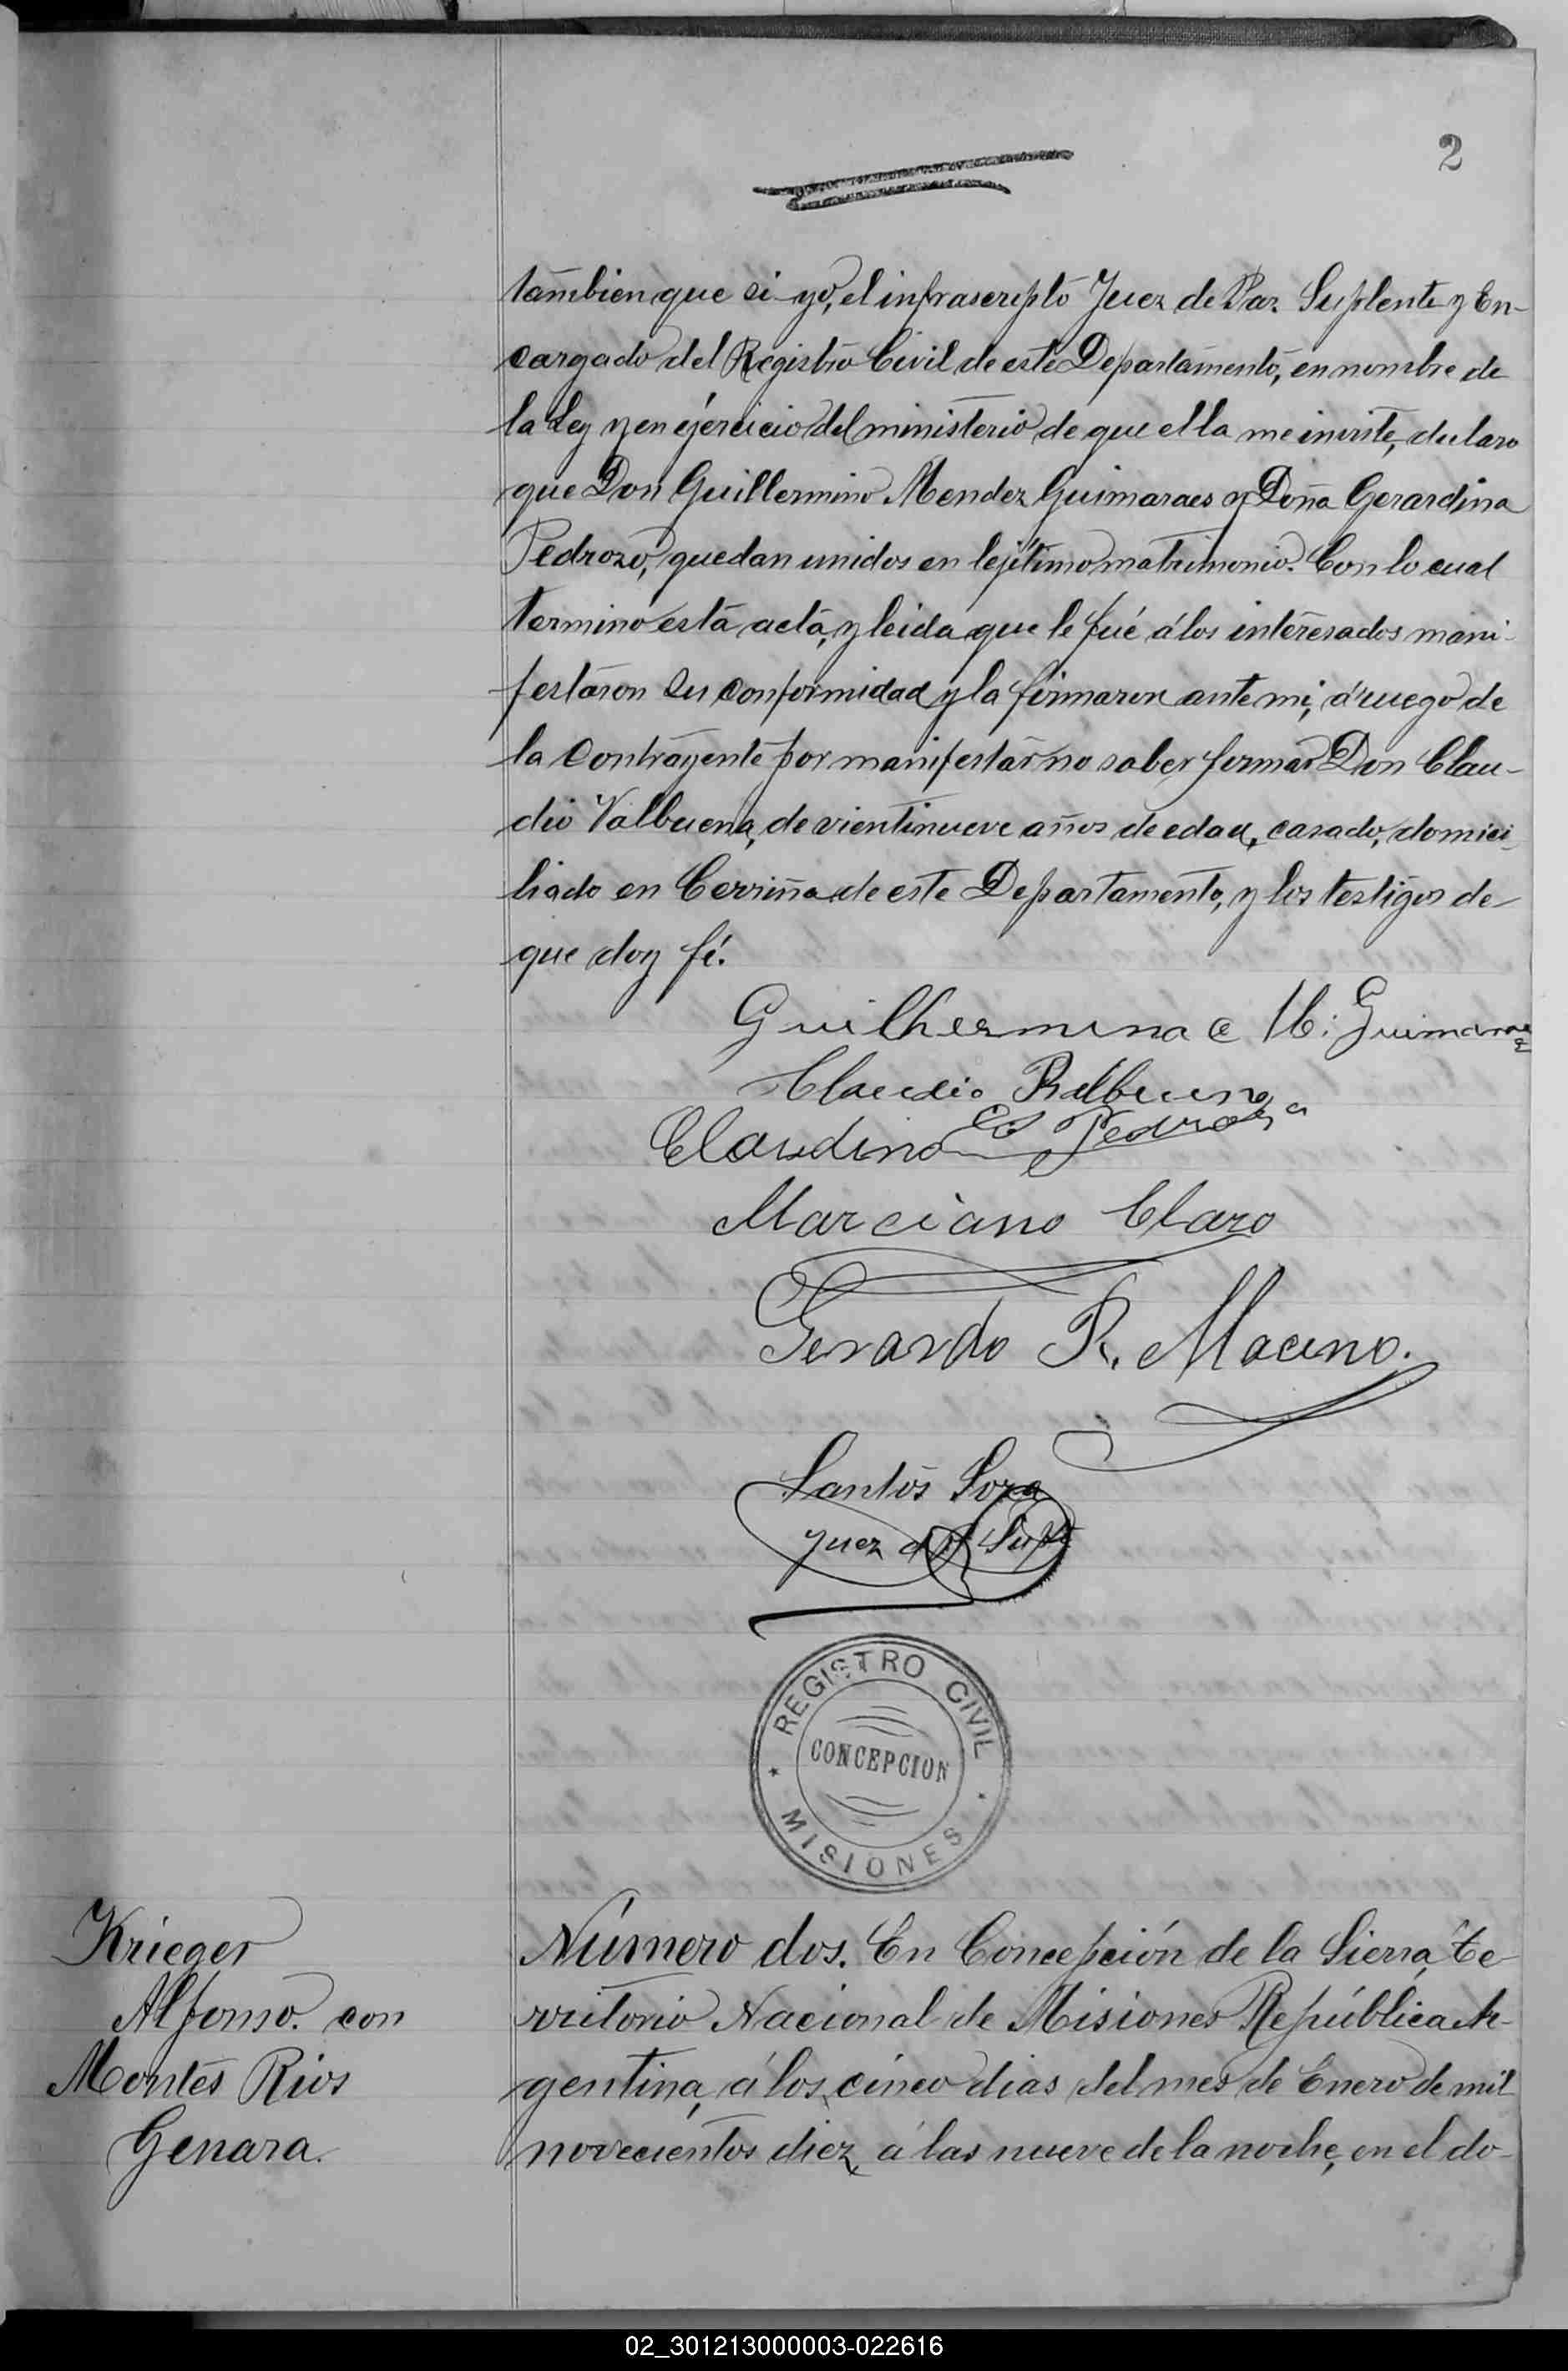 2
tambien que si yo, el infrascripto Juez de Paz Suplente y En-
cargado del Registro Civil de este Departamento, en nombre de
la Ley y en ejercicio del ministerio de que ella me inviste, declaro
que Don Guillermino Mendez Guimaraes y Doña Gerardina
Pedrozo, quedan unidos en lejítimo matrimonio. Con lo cual
termino esta acta, y leida que le fué á los interesados mani-
festaron su conformidad y la firmaron ante mi, á ruego de
la contrayente por manifestar no saber firmar Don Clau-
dio Valbuena, de vientinueve años de edad, casado, domici-
liado en Cerriña de este Departamento, y los testigos de
que doy fé.
M: Guimaraes
Claudio Balbuena
Claudino Pedroso
Marciano Claro
Gerardo R.
Santos
Juez Supte
REGISTRO CIVIL
CONCEPCION
MISIONES
Krieger
Alfonso. con
Montes Rios
Genara.
Número dos. En Concepción de la Sierra, te-
rritorio Nacional de Misiones República Ar-
gentina, á los cinco dias del mes de Enero de mil
novecientos diez, á las nueve de la noche, en el do-
02_301213000003-022616